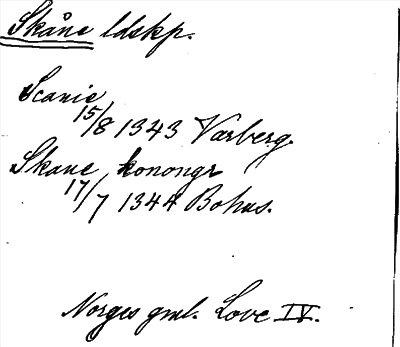 Skåne ldskp.
Scanie
15/8 1343 Varberg.
Skane, konongr
17/7 1344 Bohus.
Norges gml. Love IV.